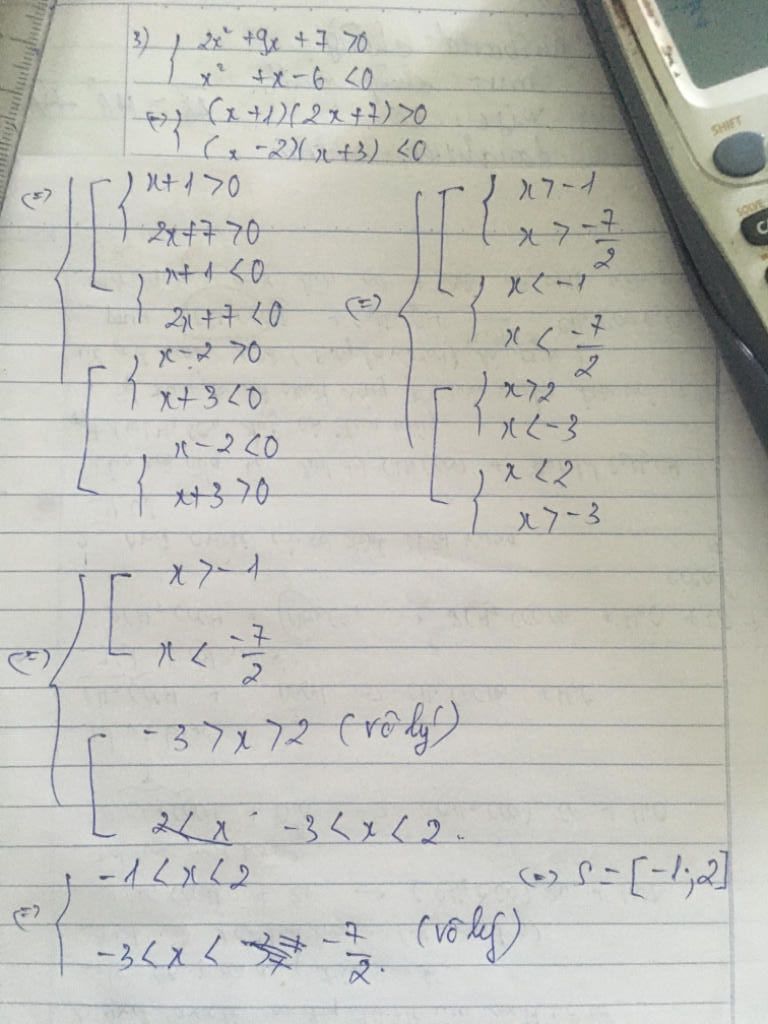 3) { 2x² + 9x + 7 > 0
x² + x - 6 < 0
(=) { (x+1)(2x+7) > 0
(x-2)(x+3) < 0
(=) { [ { x+1 > 0
2x+7 > 0
{ x+1 < 0
2x+7 < 0
[ { x-2 > 0
x+3 < 0
{ x-2 < 0
x+3 > 0
(=) { [ { x > -1
x > -7/2
{ x < -1
x < -7/2
[ { x > 2
x < -3
{ x < 2
x > -3
(=) { [ x > -1
x < -7/2
[ -3 > x > 2 (vô lý)
2 < x -3 < x < 2.
(=) { -1 < x < 2 (=) S = [-1; 2]
-3 < x < -7/2. (vô lý)
SHIFT